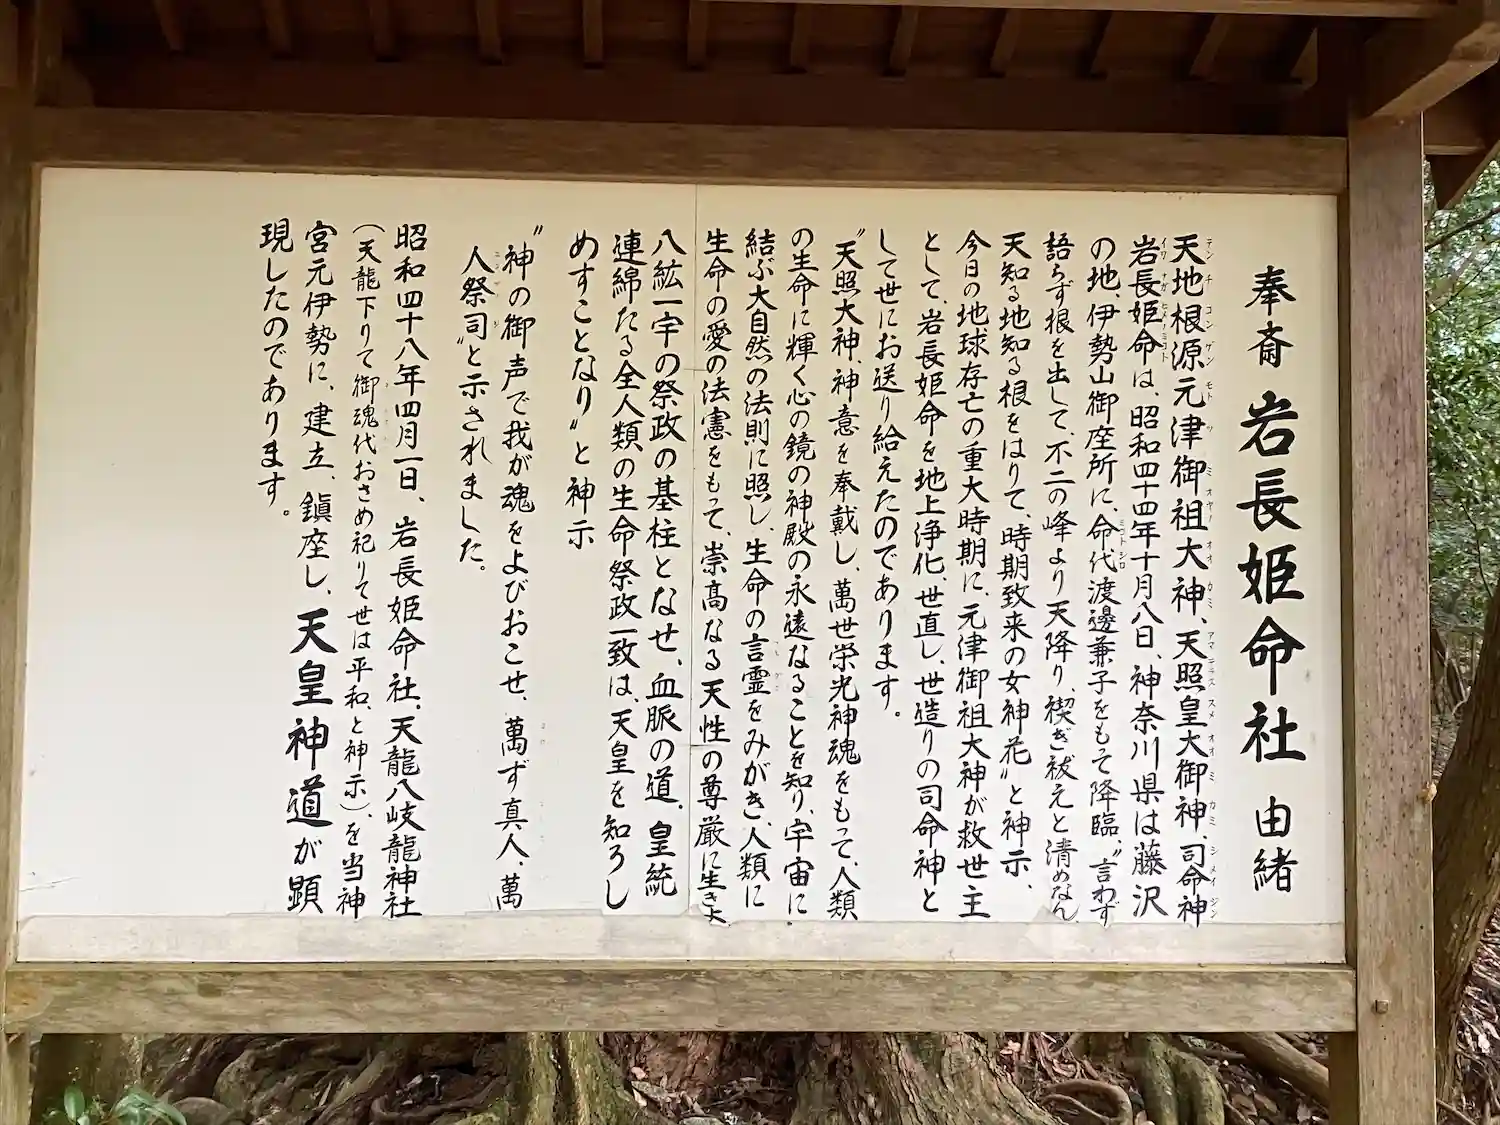 奉斎 岩長姫命社 由緒
天地根源元津御祖大神、天照皇大御神、司命神
岩長姫命は、昭和四十四年十月八日、神奈川県は藤沢
の地、伊勢山御座所に、命代渡邊兼子をもって降臨、〝言わず
語らず根を出して、不二の峰より天降り、禊ぎ祓えと清めなん
天知る地知る根をはりて、時期致来の女神花〟と神示、
今日の地球存亡の重大時期に、元津御祖大神が救世主
として、岩長姫命を地上浄化、世直し、世造りの司命神と
して世にお送り給えたのであります。
〝天照大神、神意を奉戴し、萬世栄光神魂をもって、人類
の生命に輝く心の鏡の神殿の永遠なることを知り、宇宙に
結ぶ大自然の法則に照し、生命の言霊をみがき、人類に
生命の愛の法憲をもって、崇高なる天性の尊厳に生きよ
八紘一宇の祭政の基柱となせ、血脈の道、皇統
連綿たる全人類の生命祭政一致は、天皇を知ろし
めすことなり〟と神示
〝神の御声で我が魂をよびおこせ、萬ず真人、萬
人祭司〟と示されました。
昭和四十八年四月一日、岩長姫命社、天龍八岐龍神社
(天龍下りて御魂代おさめ祀りて世は平和、と神示)、を当神
宮元伊勢に、建立、鎮座し、天皇神道が顕
現したのであります。